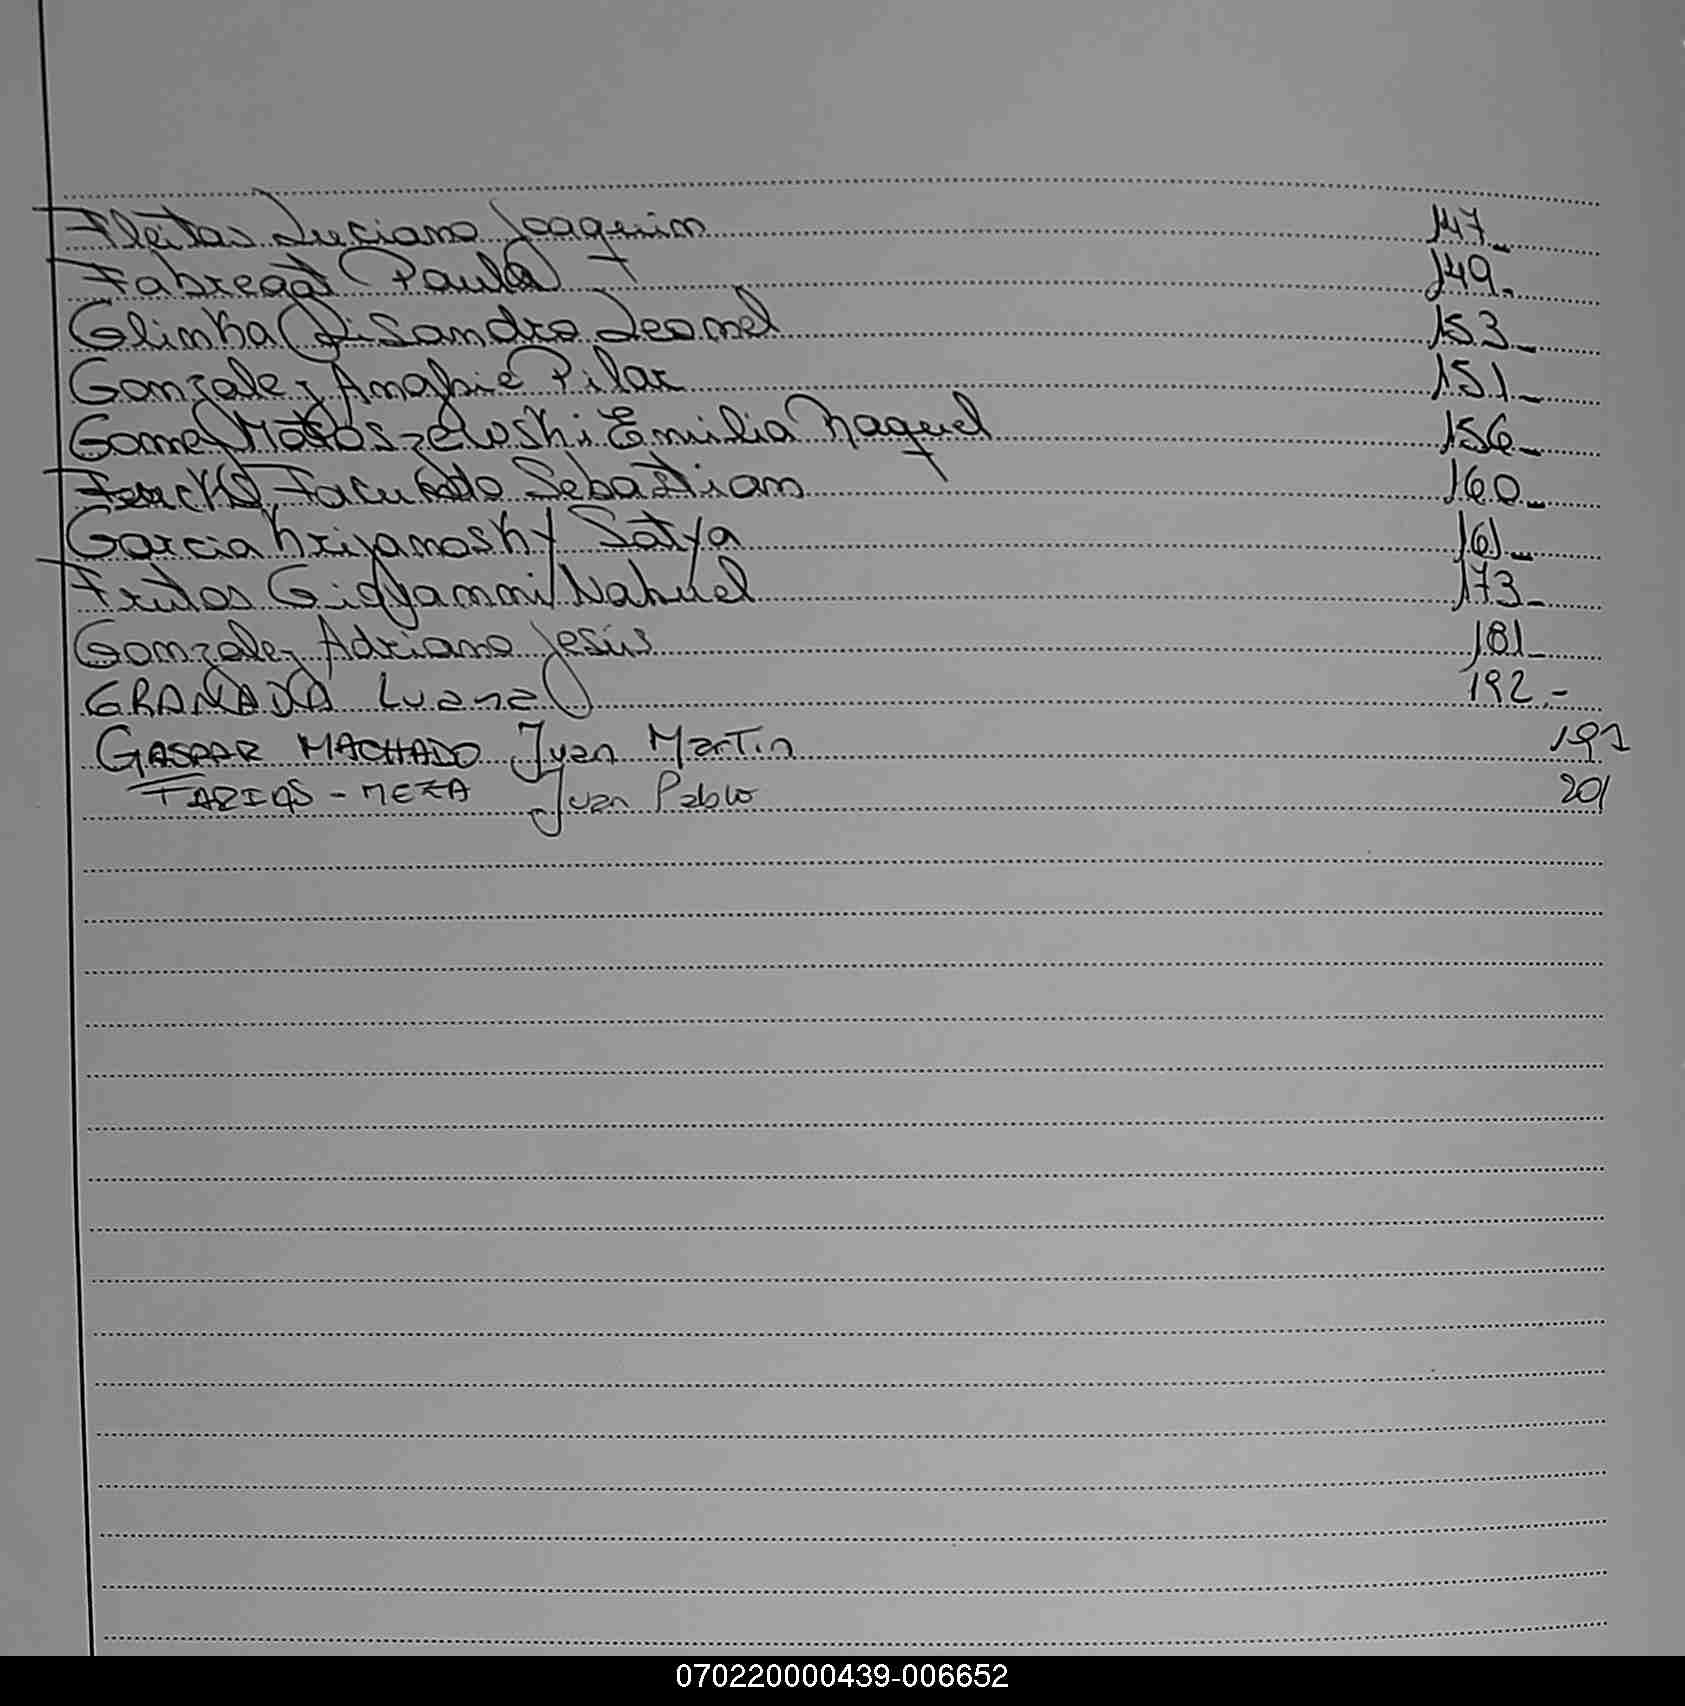 Fleitas Luciano Joaquin 147_
Fabregat Paula 149.
Glinka Lisandro Leonel 153_
Gonzalez Anghie Pilar 151_
Gomez Matoszewski Emilia Raquel 156_
Facundo Sebastian 160_
Garcia Krijanosky Satya 161_
Frutos Nahuel 173_
Gonzalez Adriano Jesús 181_
GRANADA Luana 192.-
GASPAR MACHADO Juan Martin 191
FARIAS - MEZA Juan Pablo 201
070220000439-006652